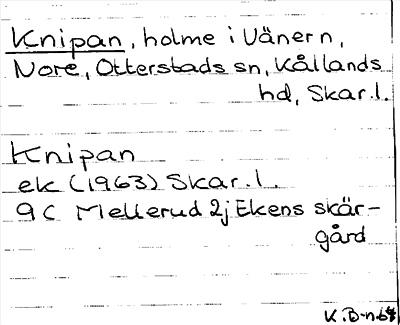 Knipan, holme i Vänern,
Nore, Otterstads sn, Kållands
hd, Skar.l.
Knipan
ek (1963) Skar.l.
9C Mellerud 2j Ekens skär-
gård
K.B-n 64